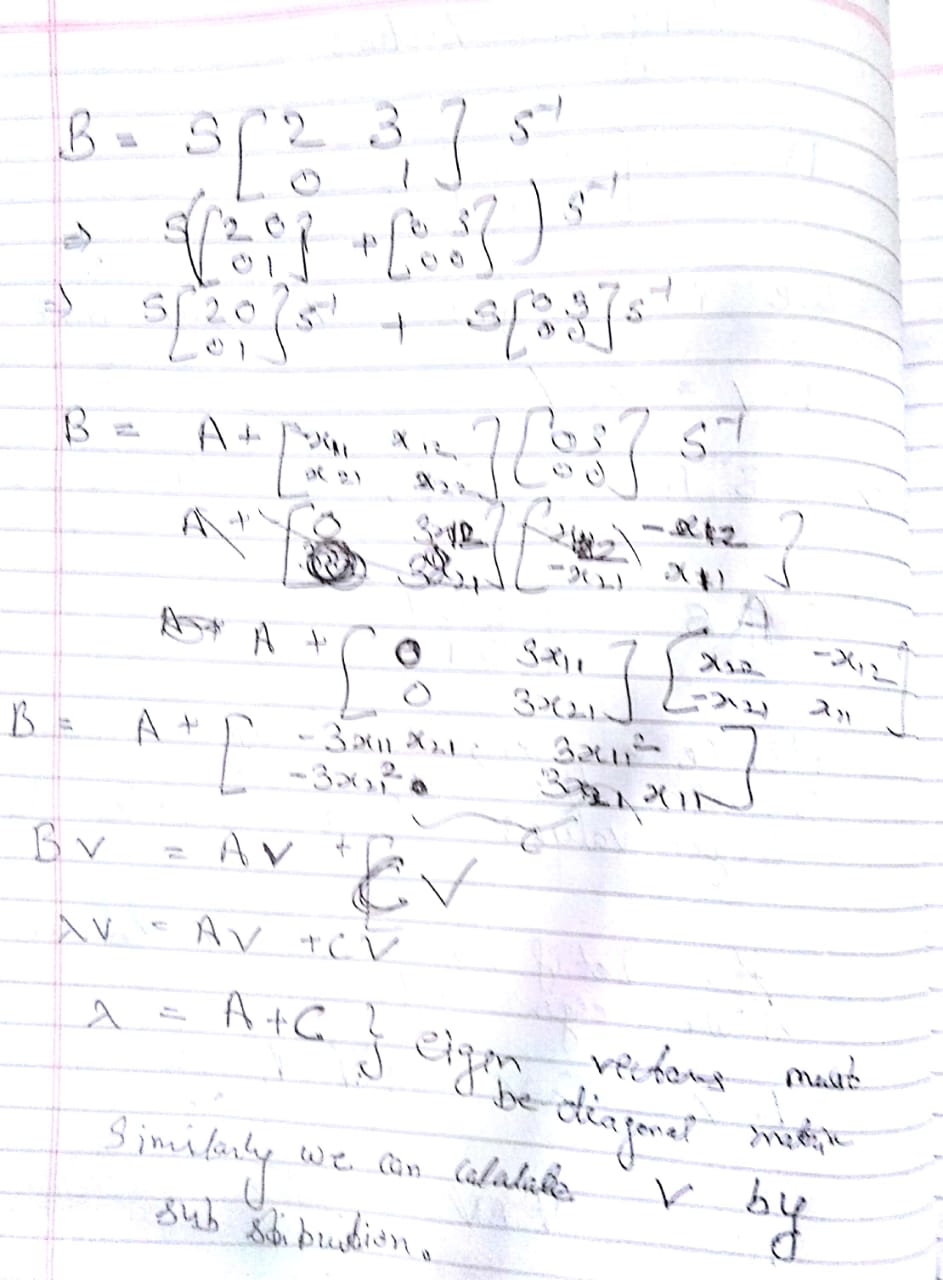 B = S [ 2 3 ; 0 1 ] S⁻¹
⇒ S ( [ 2 0 ; 0 1 ] + [ 0 3 ; 0 0 ] ) S⁻¹
⇒ S [ 2 0 ; 0 1 ] S⁻¹ + S [ 0 3 ; 0 0 ] S⁻¹
B = A + [ x₁₁ x₁₂ ; x₂₁ x₂₂ ] [ 0 3 ; 0 0 ] S⁻¹
A + [ 0 3x₁₁ ; 0 3x₂₁ ] [ x₂₂ -x₁₂ ; -x₂₁ x₁₁ ]
B = A + [ -3x₁₁ x₂₁ 3x₁₁² ; -3x₂₁² 3x₂₁ x₁₁ ]
C
BV = AV + CV
λV = AV + CV
λ = A + C } eigen vectors must
be diagonal matrix
Similarly we can calculate V by
sub